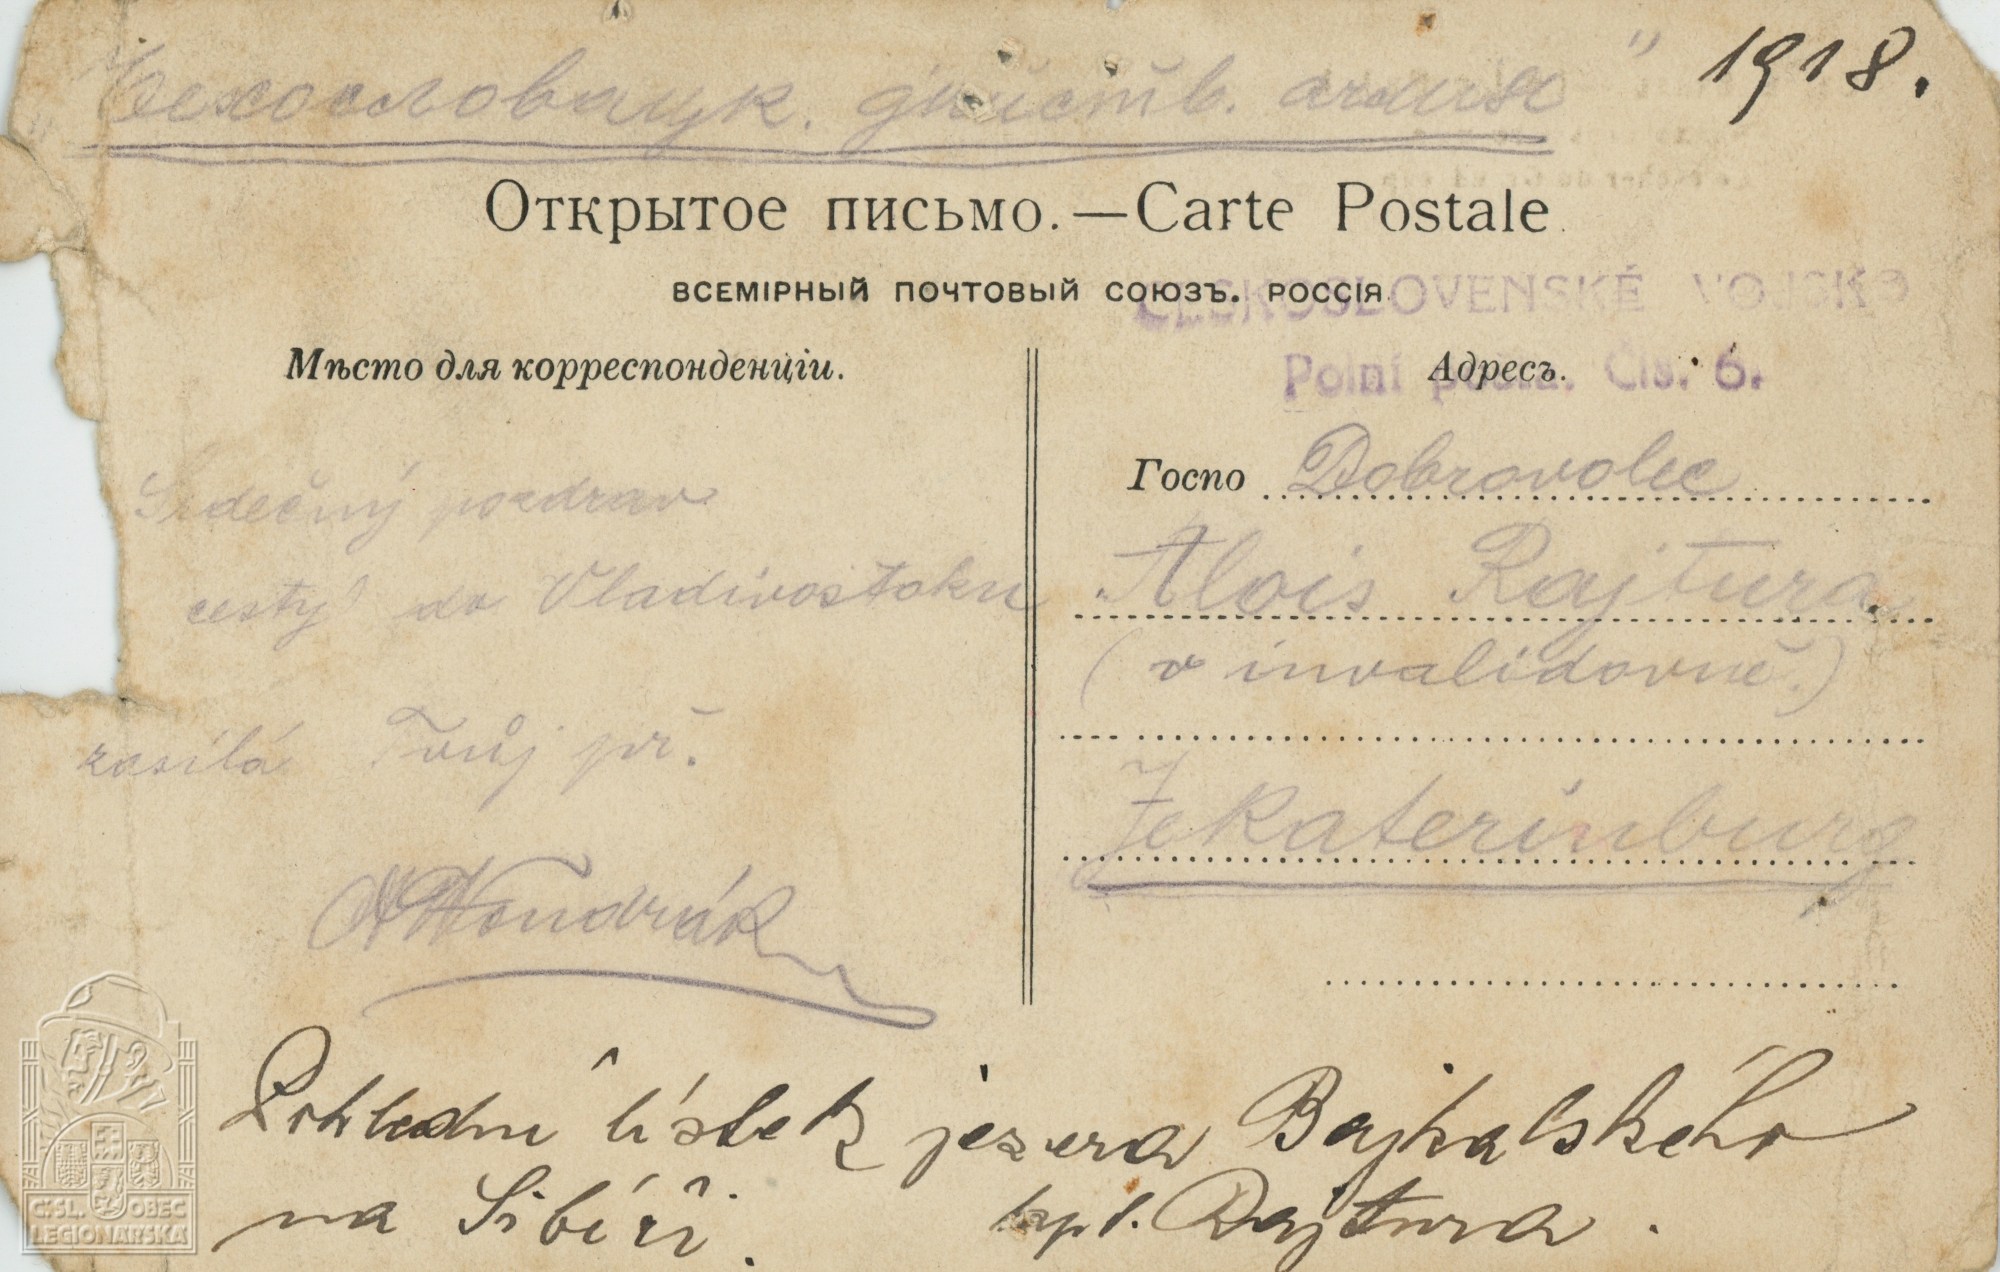 "Чехословацк. дѣйств. армія" 1918.
Открытое письмо.—Carte Postale.
ВСЕМІРНЫЙ ПОЧТОВЫЙ СОЮЗЪ. РОССІЯ.
ČESKOSLOVENSKÉ VOJSKO
Polní pošta. Čís. 6.
Мѣсто для корреспонденціи.
Srdečný pozdrav
cesty do Vladivostoku
zasílá Tvůj př.
Wondrák
Адресъ.
Госпо Dobrovolec
Alois Rajtura
(v invalidovně.)
Jekaterinburg
Pohlední lístek jezera Bajkalského
na Sibíři. kpl. Rajtura.
Č:SL. OBEC
LEGIONÁŘSKÁ